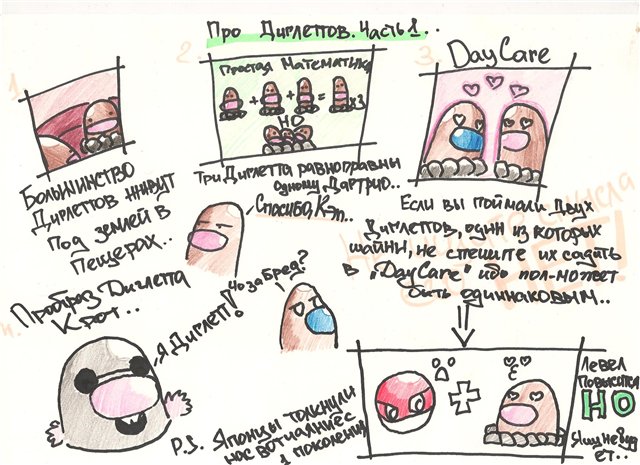 Про Диглеттов. Часть 1..
1.
Большинство
Диглеттов живут
под землей в
пещерах..
2.
Простая Математика
+ + = x3
НО
Три Диглетта равноправны
одному Дагтрио..
Спасибо, Кэп..
3.
Day Care
Если вы поймали двух
Диглеттов, один из которых
шайни, не спешите их садить
в „Day Care" ибо пол может
быть одинаковым..
НЕТ!
Чо за бред?
4.
Прообраз Диглетта
Крот..
Я Диглет!
+
Левел
повысится
НО
Яиц не буд
ет..
P.S. Японцы толкнули
нас в отчаяние с
1 поколения